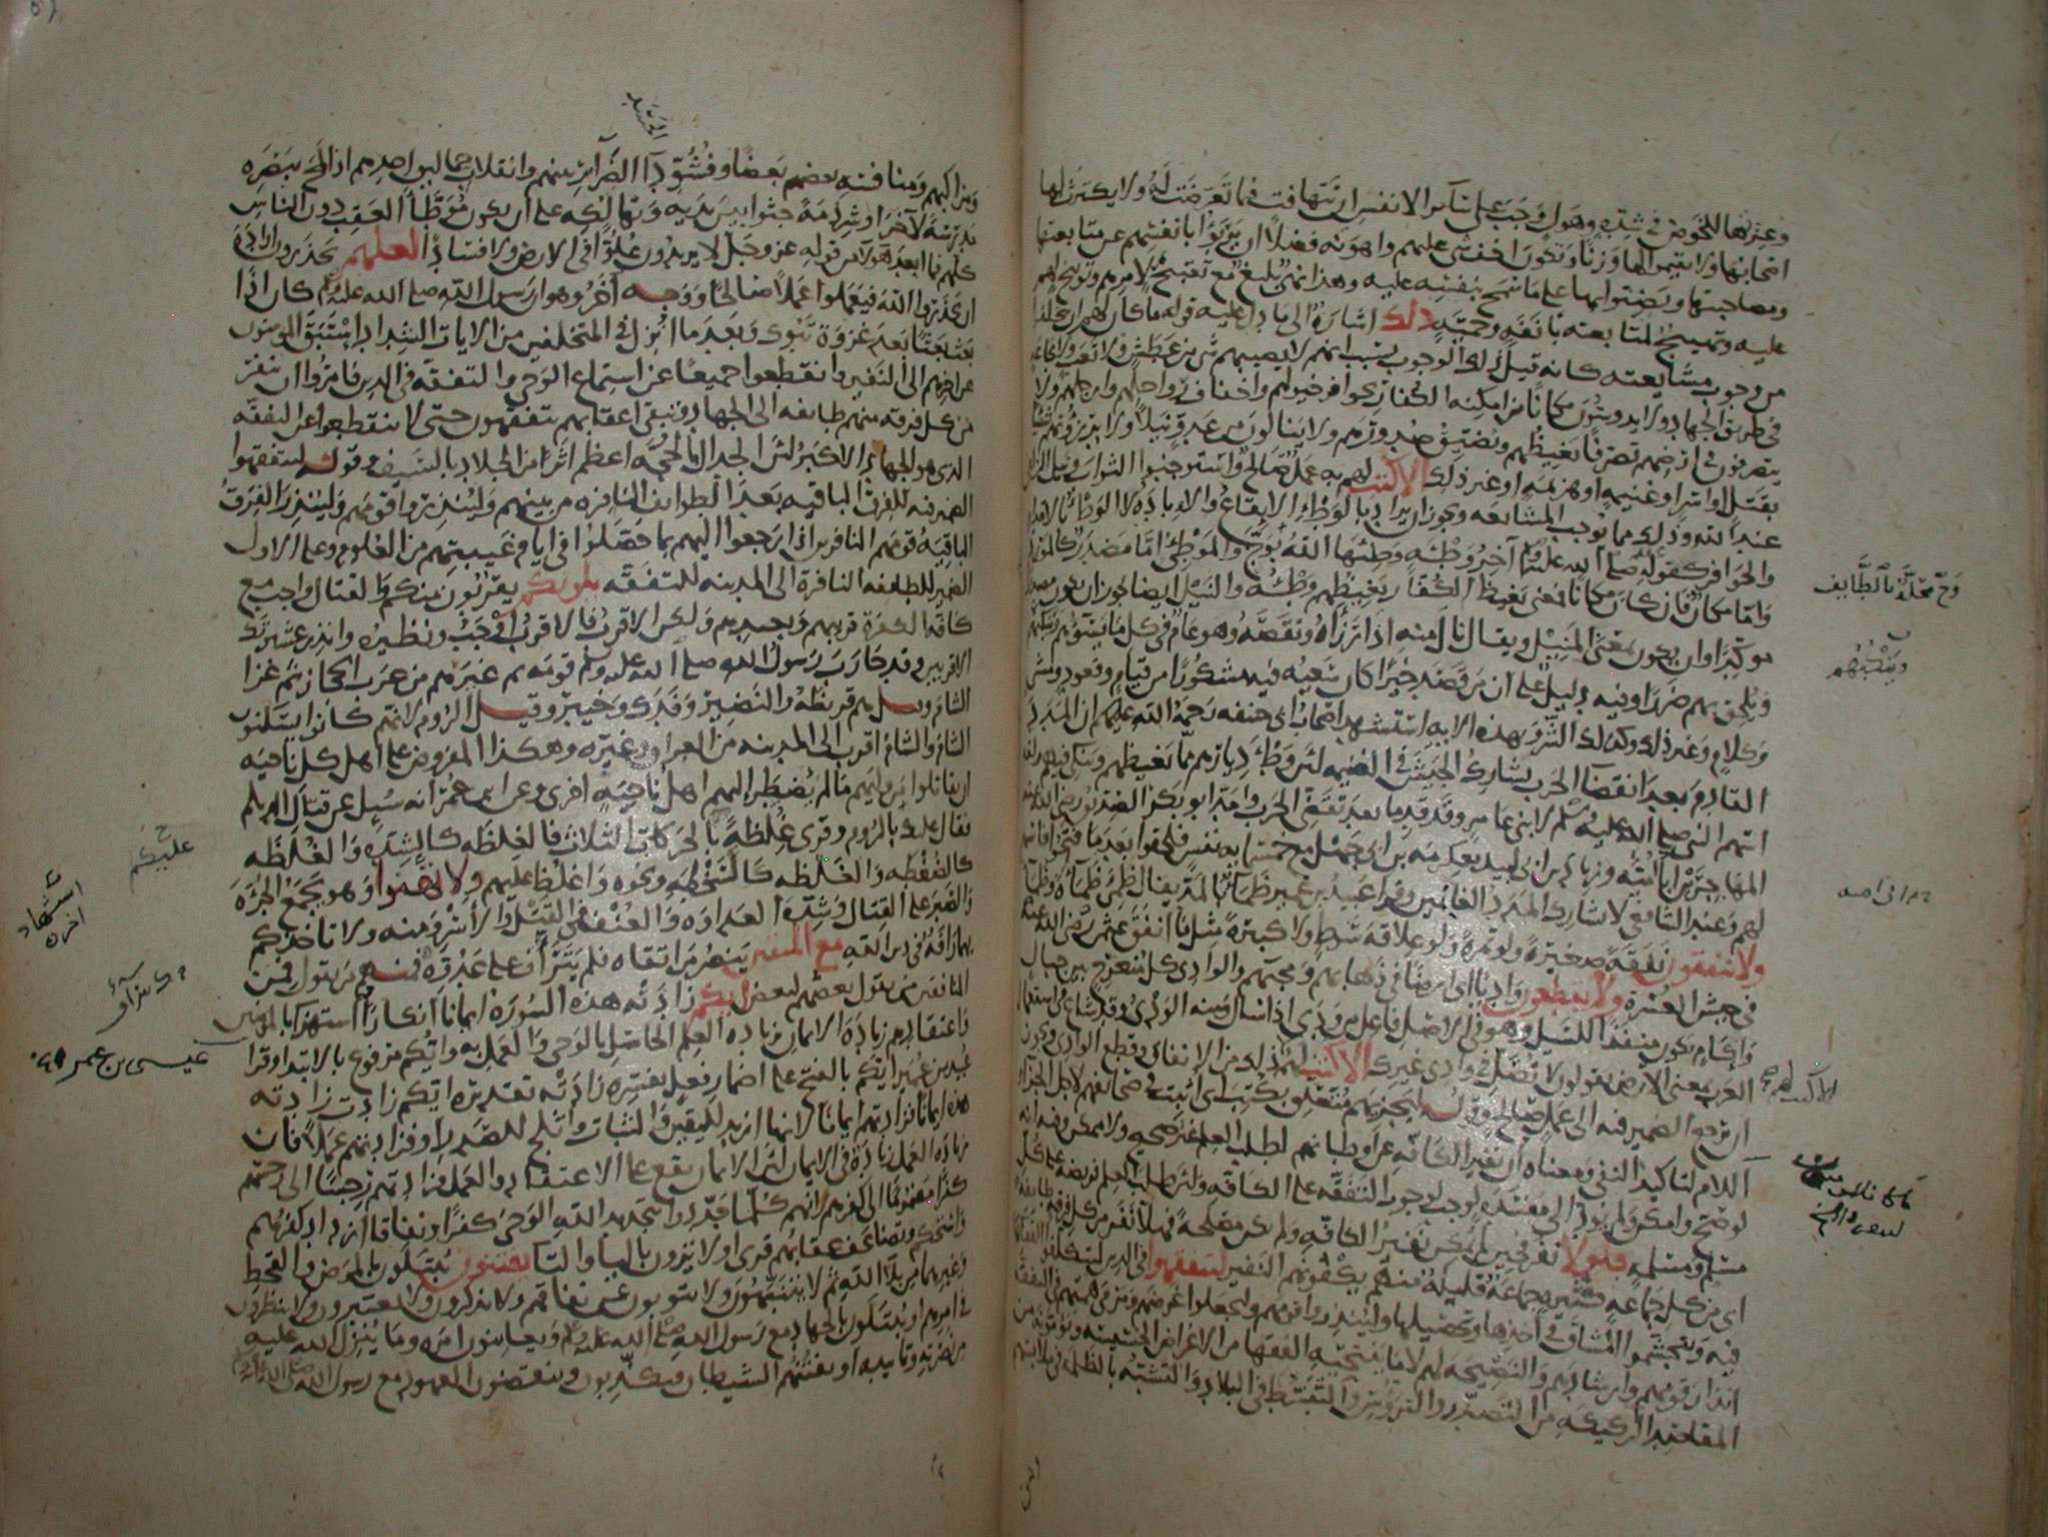 وعزتها للخوض في شدة وهول وجب على سائر الانفس ان تتهافت فيما تعرضت له ولا يكترث لها
اصحابها ولا يقيموا لها وزنا وتكون اخف شي عليهم واهونه فضلا ان يربؤا بانفسهم عن متابعتها
ومصاحبتها ويضنوا بها على ما سمح بنفسه عليه وهذا نهي بليغ مع تقبيح لامرهم وتوبيخ لهم
عليه وتهييج لمتابعته بانفة وحمية ذلك اشارة الى ما دل عليه قوله ما كان لهم ان يتخلفوا
من وجوب مشايعته كانه قيل ذلك الوجوب بسبب انهم لا يصيبهم شي من عطش ولا تعب ولا مجاعة
في طريق الجهاد ولا يدوسون مكانا من امكنة الكفار بحوافر خيولهم واخفاف رواحلهم وارجلهم ولا
يتصرفون في ارضهم تصرفا يغيظهم ويضيق صدورهم ولا ينالون من عدو نيلا ولا يرزؤنهم شيا
بقتل او اسر او غنيمة او هزيمة او غير ذلك الا كتب لهم به عمل صالح واستوجبوا الثواب ونيل الزلفى
عند الله وذلك مما يوجب المشايعة ويجوز ان يراد بالوطء الايقاع والابادة لا الوطء بالاقدام
والحوافر كقوله صلى الله عليه وسلم آخر وطئة وطئها الله بوج والموطئ اما مصدر كالمورد
واما مكان فان كان مكانا فمعنى يغيظ الكفار يغيظهم وطؤه والنيل ايضا يجوز ان يكون مصدرا
موكدا وان يكون بمعنى المنيل ويقال نال منه اذا رزاه ونقصه وهو عام في كل ما يسوءهم وينكبهم
ويلحق بهم ضررا وفيه دليل على ان من قصد خيرا كان سعيه فيه مشكورا من قيام وقعود ومشي
وكلام وغير ذلك وكذلك الشر وبهذه الاية استشهد اصحاب ابي حنيفه رحمة الله عليهم ان المدد
القادم بعد انقضا الحرب يشارك الجيش في الغنيمه لان وطء ديارهم مما يغيظهم وينكي فيهم ولقد
اسهم النبي صلى الله عليه وسلم لابني عامر وقد قدما بعد تقضي الحرب وامد ابو بكر الصديق رضي الله عنه
المهاجر بن ابي امية وزياد بن ابي لبيد بعكرمة بن ابي جهل مع خمسمايه نفس فلحقوا بعد ما فتحوا فاسهم
لهم وعند الشافعي لا يشارك المدد الغانمين وقرا عبيد بن عمير ظماء بالمد يقال ظمئ ظماءة وظماء
ولا ينفقون نفقة صغيرة ولو تمرة ولو علاقة سوط ولا كبيرة مثل ما انفق عثمن رضي الله عنه
في جيش العسرة ولا يقطعون واديا اي ارضا في ذهابهم ومجيهم والوادي كل منعرج بين جبال
واكام يكون منفذا للسيل وهو في الاصل فاعل من ودى اذا سال ومنه الودي وقد شاع في استعمال
العرب بمعنى الارض يقولون لا تصل في وادي غيرك الا كتب لهم ذلك من الانفاق وقطع الوادي ويجوز
ان يرجع الضمير فيه الى عمل صالح وقوله ليجزيهم متعلق بكتب اي اثبت في صحائفهم لاجل الجزاء
اللام لتاكيد النفي ومعناه ان نفير الكافة عن اوطانهم لطلب العلم غير صحيح ولا ممكن وفيه انه
لو صح وامكن ولم يود الى مفسدة لوجب لوجوب التفقه على الكافة ولان طلب العلم فريضة على كل
مسلم ومسلمة فلولا نفر فحين لم يمكن نفير الكافة ولم يكن مصلحة فهلا نفر من كل فرقة طايفة
اي من كل جماعة كثيرة جماعة قليلة منهم يكفونهم النفير ليتفقهوا في الدين ليتكلفوا الفقاهة
فيه ويتجشموا المشاق في اخذها وتحصيلها ولينذروا قومهم وليجعلوا غرضهم ومرمى همتهم في التفقه
انذار قومهم وارشادهم والنصيحة لهم لا ما ينتحيه الفقها من الاغراض الخسيسة ويؤمونه من
المقاصد الركيكة من التصدر والترؤس والتبسط في البلاد والتشبه بالظلمة في ملابسهم
وج محلة بالطايف
وينكبهم
الا كتب لهم
ومراكبهم ومنافسة بعضهم بعضا وفشو دا الضرائر بينهم وانقلاب حماليق احدهم اذا لمح ببصره
مدرسة لآخر او شرذمة جثوا بين يديه وتهالكه على ان يكون موطأ العقب دون الناس
كلهم فما ابعد هؤلا من قوله عز وجل لا يريدون علوا في الارض ولا فسادا لعلهم يحذرون ارادة
ان يحذروا الله فيعملوا عملا صالحا ووجه آخر وهو ان رسول الله صلى الله عليه وسلم كان اذا
بعث بعثا بعد غزوة تبوك وبعد ما انزل في المتخلفين من الايات الشداد استبق المومنون
عن اخرهم الى النفير وانقطعوا جميعا عن استماع الوحي والتفقه في الدين فامروا ان ينفر
من كل فرقة منهم طايفه الى الجهاد وتبقى اعقابهم يتفقهون حتى لا ينقطعوا عن التفقه
الذي هو الجهاد الاكبر لان الجدال بالحجة اعظم اثرا من الجلاد بالسيف وقوله ليتفقهوا
الضمير فيه للفرق الباقيه بعد الطوايف النافره من بينهم ولينذروا قومهم ولينذر الفرق
الباقية قومهم النافرين اذا رجعوا اليهم بما حصلوا في ايام غيبتهم من العلوم وعلى الاول
الضمير للطايفه النافرة الى المدينه للتفقه يلونكم يقربون منكم والقتال واجب مع
كافة الكفرة قريبهم وبعيدهم ولكن الاقرب فالاقرب اوجب ونظيره وانذر عشيرتك
الاقربين وقد حارب رسول الله صلى الله عليه وسلم قومه ثم غيرهم من عرب الحجاز ثم غزا
الشام وقيل هم قريظة والنضير وفدك وخيبر وقيل الروم لانهم كانوا يسكنون
الشام والشام اقرب الى المدينه من العراق وغيره وهكذا المفروض على اهل كل ناحية
ان يقاتلوا من وليهم ما لم يضطر اليهم اهل ناحية اخرى وعن ابن عمر انه سيل عن قتال الديلم
فقال عليك بالروم وقرى غلظة بالحركات الثلاث فالغلظة كالشدة والغلظة
كالضغطة والغلظة كالسخطة ونحوه واغلظ عليهم ولا تهنوا وهو يجمع الجرأة
والصبر على القتال وشدة العداوة والعنف في القتل والاسر ومنه ولا تاخذكم
بهما رافة في دين الله مع المتقين ينصر من اتقاه فلم يترأف على عدوه فمنهم من يقول فمن
المنافقين من يقول بعضهم لبعض ايكم زادته هذه السورة ايمانا انكارا واستهزا بالمومنين
واعتقادهم زيادة الايمان بزيادة العلم الحاصل بالوحي والعمل به وايكم مرفوع بالابتدا وقرا
عبيد بن عمير ايكم بالفتح على اضمار فعل يفسره زادته تقديره ايكم زادت زادته
هذه ايمانا فزادتهم ايمانا لانها ازيد لليقين والثبات واثلج للصدر او فزادتهم عملا فان
زيادة العمل زيادة في الايمان لان الايمان يقع على الاعتقاد والعمل فزادتهم رجسا الى رجسهم
كفرا مضموما الى كفرهم لانهم كلما جددوا بتجديد الله الوحي كفرا ونفاقا ازداد كفرهم
واستحكم وتضاعف عقابهم قرى اولا يرون بالياء والتا يفتنون يبتلون بالمرض والقحط
وغيرهما من بلا الله ثم لا ينتهون ولا يتوبون عن نفاقهم ولا يذكرون ولا يعتبرون ولا ينظرون
في امرهم او يبتلون بالجهاد مع رسول الله صلى الله عليه وسلم ويعاينون امره وما ينزل الله عليه
من نصرته وتاييده او يفتنهم الشيطان فيكذبون وينقضون العهود مع رسول الله صلى الله عليه وسلم
عليكم
استشهاد
اخره
عيسى بن عمر